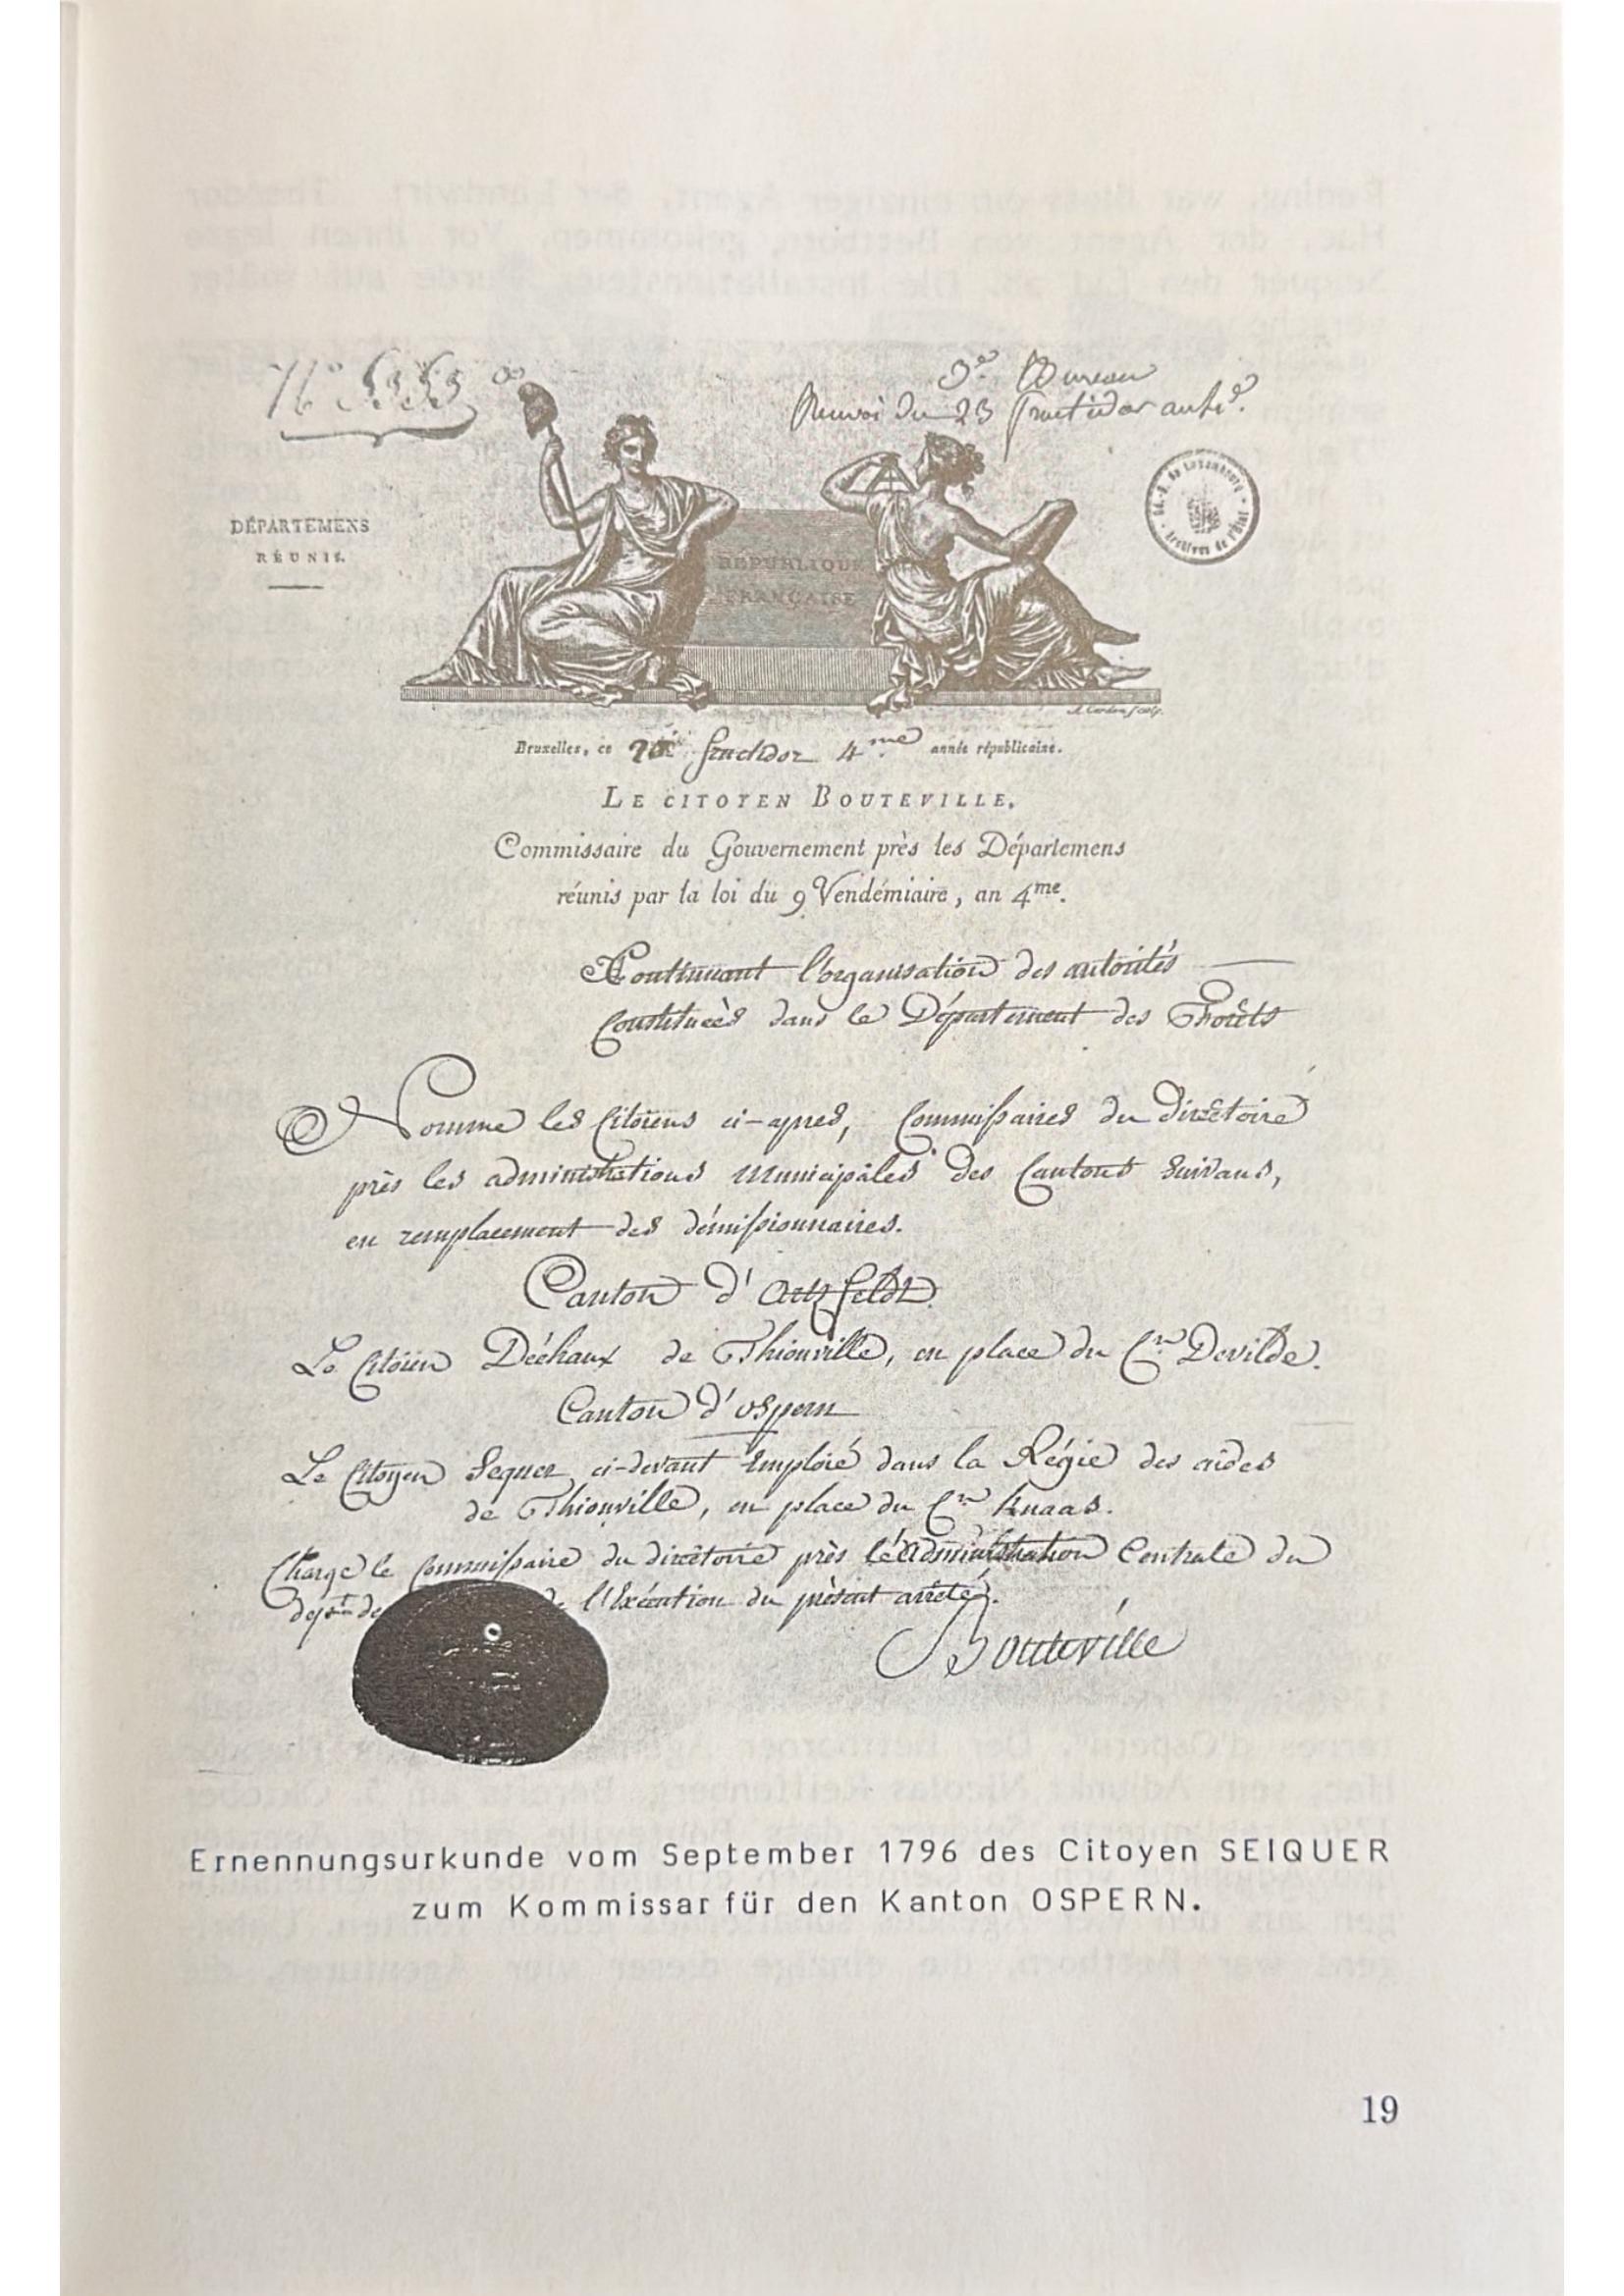 Nº 5353
3e. Bureau
Renvoi du 23 fructidor
DÉPARTEMENS
RÉUNIS.
RÉPUBLIQUE
FRANÇAISE
Gd.-D. de Luxembourg
Archives de l'État
A. Cardon sculp.
Bruxelles, ce fructidor 4.me année républicaine.
LE CITOYEN BOUTEVILLE,
Commissaire du Gouvernement près les Départemens
réunis par la loi du 9 Vendémiaire, an 4me.
Continuant l'organisation des autorités
Constituées dans le Département des Forêts
Nomme les Citoiens ci-après, Commissaires du Directoire
près les administrations municipales des Cantons Suivans,
en remplacement des démissionnaires.
Canton d'Artzfeldt
Le Citoien Déchaux de Thionville, en place du Cen. Devilde.
Canton d'ospern
Le Citoyen Sequer, ci-devant Emploié dans la Régie des aides
de Thionville, en place du Cen Knaas.
Charge le Commissaire du directoire près l'administration Centrale du
dépt. de l'Exécution du présent arrêté.
Bouteville
Ernennungsurkunde vom September 1796 des Citoyen SEIQUER
zum Kommissar für den Kanton OSPERN.
19